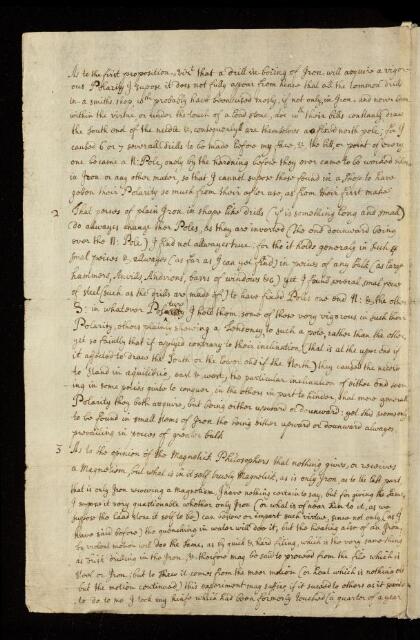 As to the first proposition, vizt that a drill in boring of Iron, will acquire a vigor-
ous Polarity I suppose it does not fully appear from hence that all the common drills
in a smiths shop, wch probably have been used mostly, if not only, in Iron, and never been
within the virtue, or under the touch of a load stone, do wth their bills constantly draw
the south end of the needle &, consequently are themselves a fixed north pole; for I
caused 6 or 7 severall drills to be made before my face, & the bill, or point of every
one became a N: Pole, only by the hardening before they ever came to be worked
in Iron, or any other mater, so that I cannot suppose those found in a shop to have
gotten their Polarity so much from their after use, as from their first make
2 That peices of plain Iron, in shape like drills (yt is something long and small)
do allwayes change their Poles, as they are inverted (the end downward being
ever the N: Pole) I find not allwayes true: for tho it holds generaly in such
small peices & allwayes (as far as I can yet find) in peices of any bulk (as large
hammers, Anvils, Andirons, barrs of windows &c) yet I found several small peices
of steel (such as the drills are made of) to have fixed Poles one end N: & the other
S: in whatever Posture I held them some of those very vigorous in such their
Polarity, others plainly shewing a tendency to such a pole, rather than the other,
yet so faintly that if applied contrary to their inclination (that is at the upper end if
it applied to draw the South or the lower end if the North) they caused the needle
to stand in aequilibrio, east & west, the particular inclination of either end serv-
ing in some poles quite to conquer, in the others in part to hinder that more general
Polarity they both acquire, but being either upward or downward; yet this seemeth
to be found in small Items of Iron the being either upward or downward always
prevailing in peices of greater bulk
3 As to the opinion of the Magnetick Philosophers that nothing gives, or receives
a Magnetism, but what is in it self truely Magnetick, as is only Iron, as to the last part
that is only Iron receiving a Magnetism, I have nothing certain to say, but for giving the same,
I suppose it very questionable whether only Iron (or what is of near kin to it, as we
suppose the load stone it self to be) can restore or impart such virtue, since not only (as I
have said before) the quenching in water will doe it, but the heating also of an Iron,
by violent motion will doe the same, as by quick & hard filing, which is the very same thing
as brisk drilling in the Iron, & therefore may be said to proceed from the file which is
steel or Iron; but to shew it comes from the meer motion (or heat which is nothing else
but the motion continued) this experiment may suffice if it succeed to others as it seemed
to do to me I took my knife which had been formerly touched (a quarter of a year